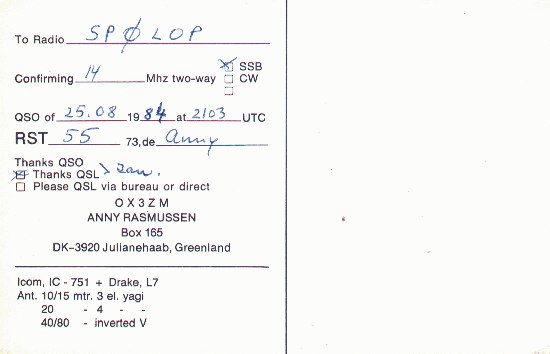 To Radio SPØLOP
Confirming 14 Mhz two-way SSB
CW
QSO of 25.08 1984 at 2103 UTC
RST 55 73, de Anny
Thanks QSO
Thanks QSL
Please QSL via bureau or direct
OX3ZM
ANNY RASMUSSEN
Box 165
DK-3920 Julianehaab, Greenland
Icom, IC - 751 + Drake, L7
Ant. 10/15 mtr. 3 el. yagi
20 - 4 - -
40/80 - inverted V